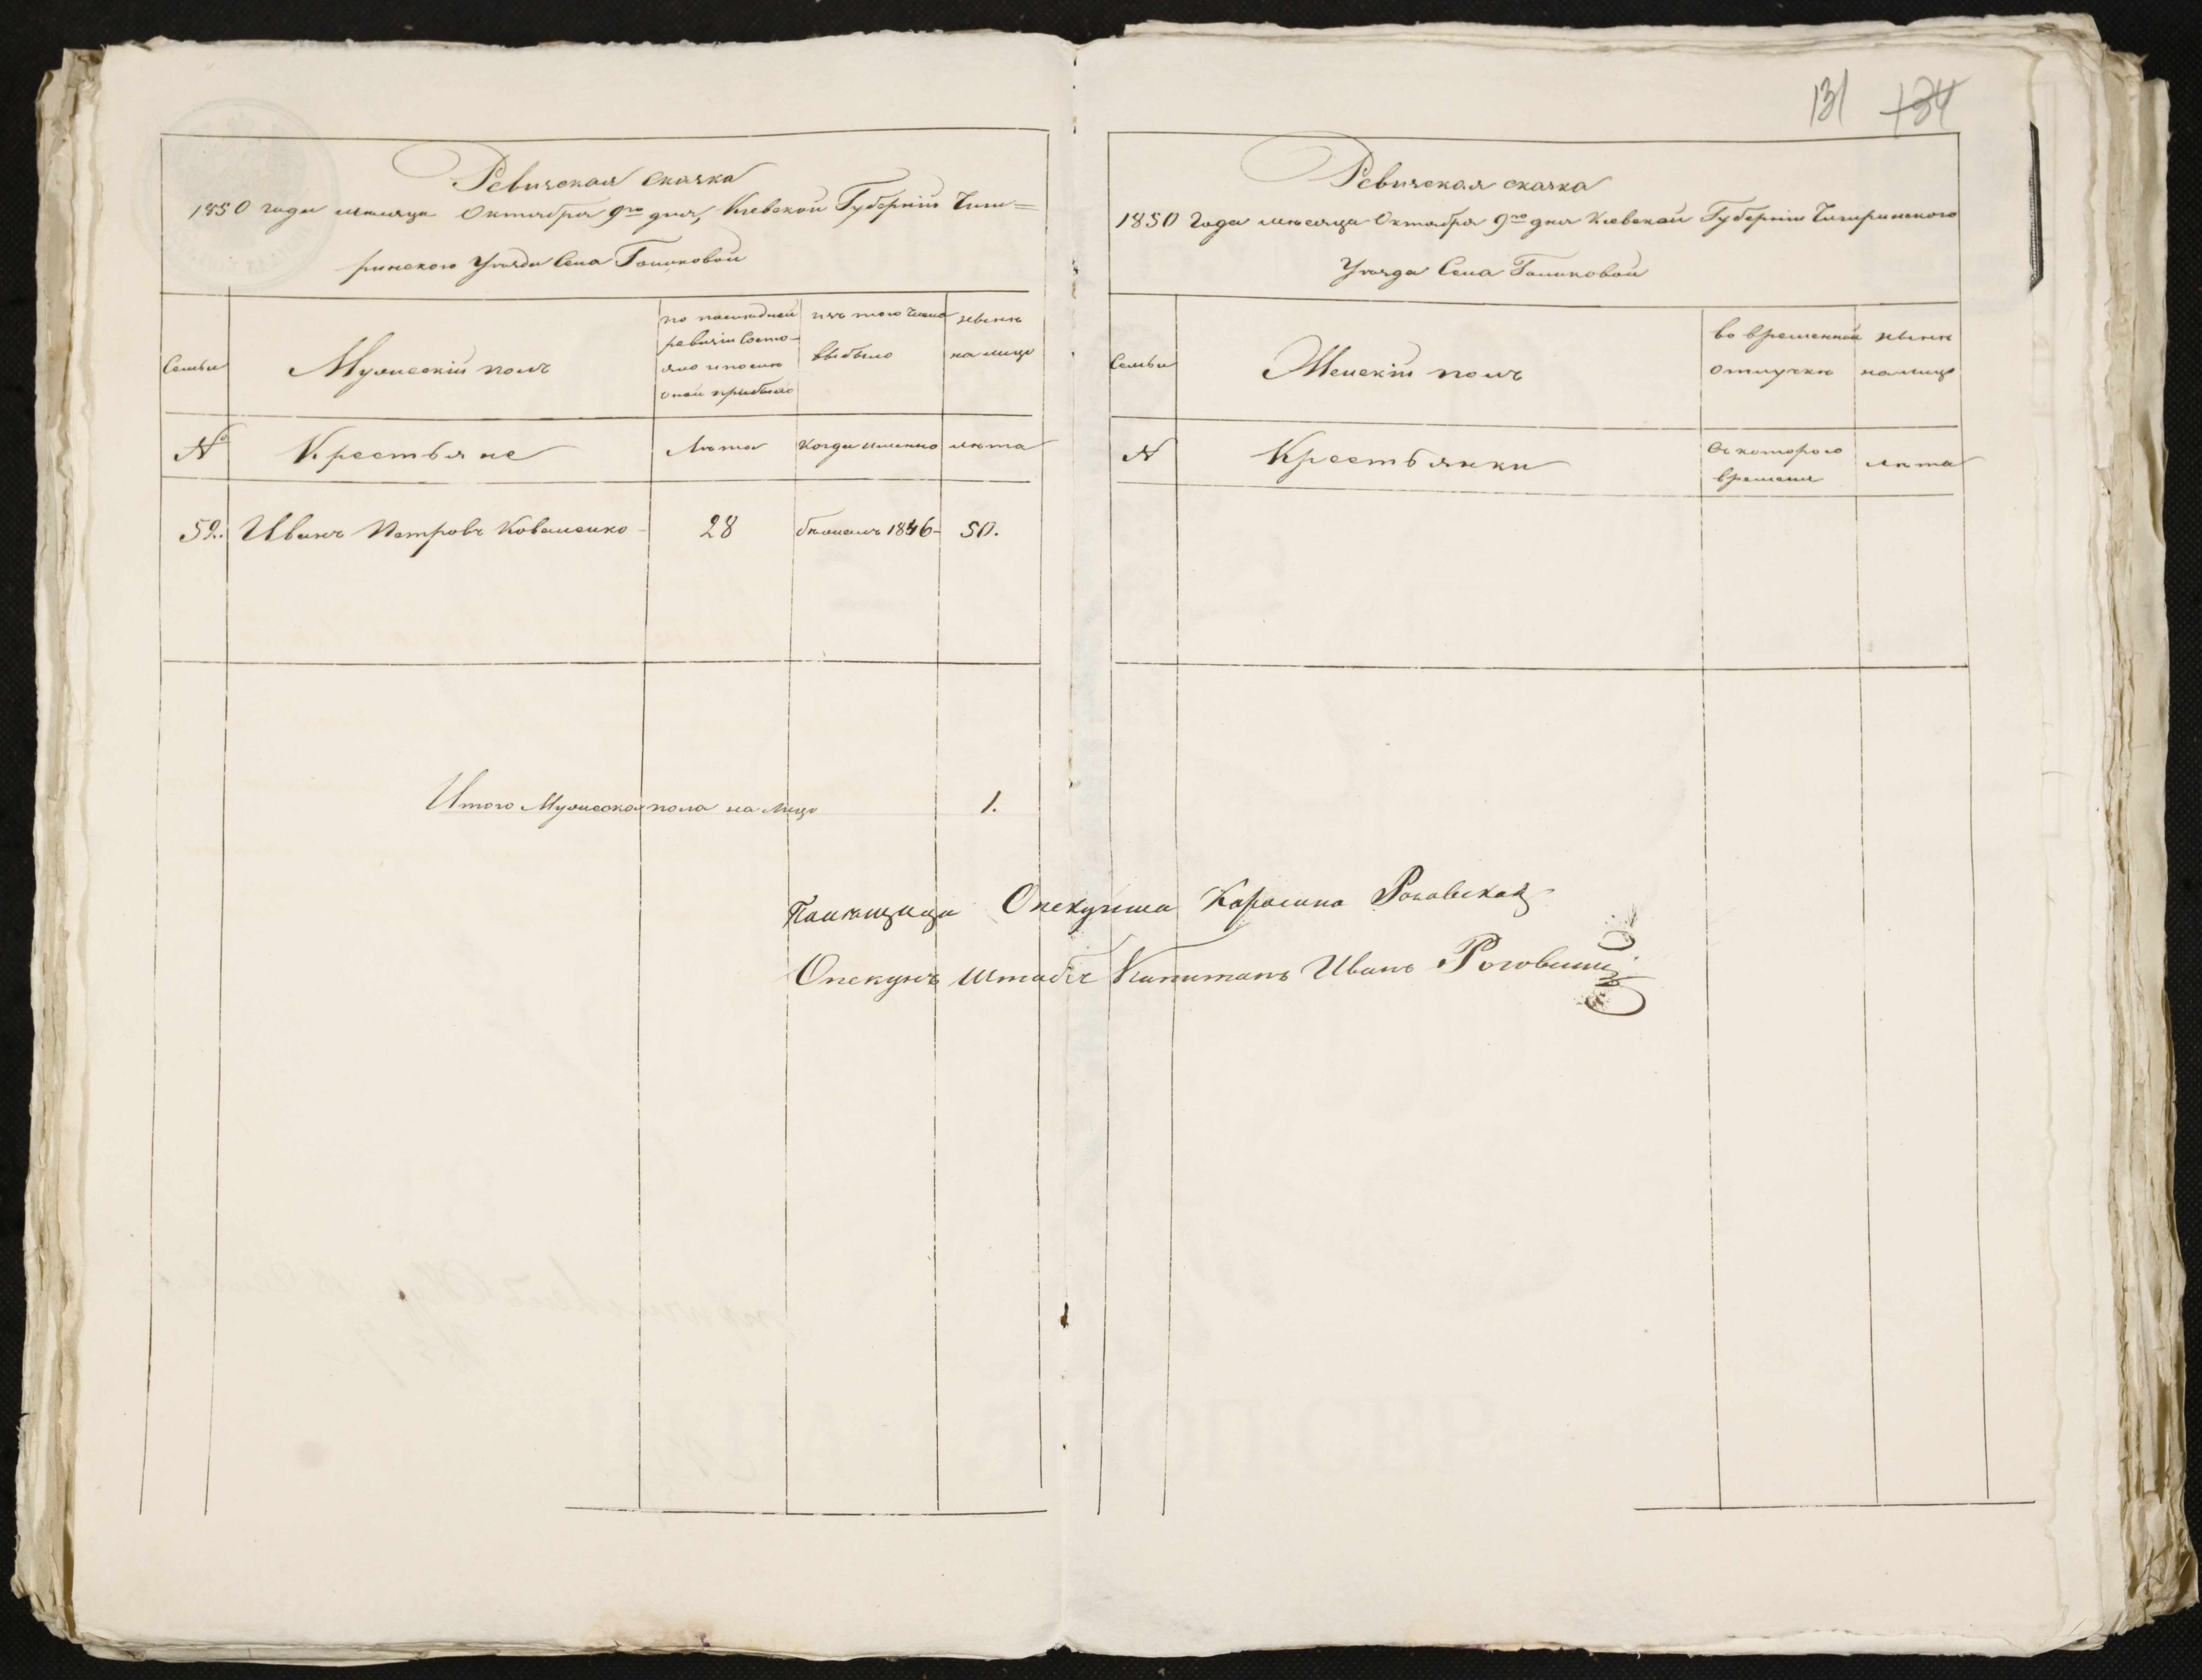 131 134
Ревизская сказка
1850 года месяца Октября 9го дня, Киевской Губернiи Чиги=
ринского Уезда Села Голиковой
Семьи
Мужескiй полъ
по последней
ревизiи состо-
яло и после
оной прибыло
изъ того числа
выбыло
ныне
на лицо
№
Крестьяне
Лета
Когда именно
лета
52. Иванъ Петровъ Коваленко - 28 1846- 50.
Итого Мужеска пола на лицо 1.
Ревизская сказка
1850 Года месяца Октября 9го дня Киевской Губернiи Чигиринского
Уезда Села Голиковой
Семьи
Женскiй полъ
во временной
отлучке
ныне
налицо
№
Крестьянки
Съ которого
времени
лета
Помещица Опекунша Каролина Роговская
Опекунъ Штабсъ Капитанъ Иванъ Роговскiй